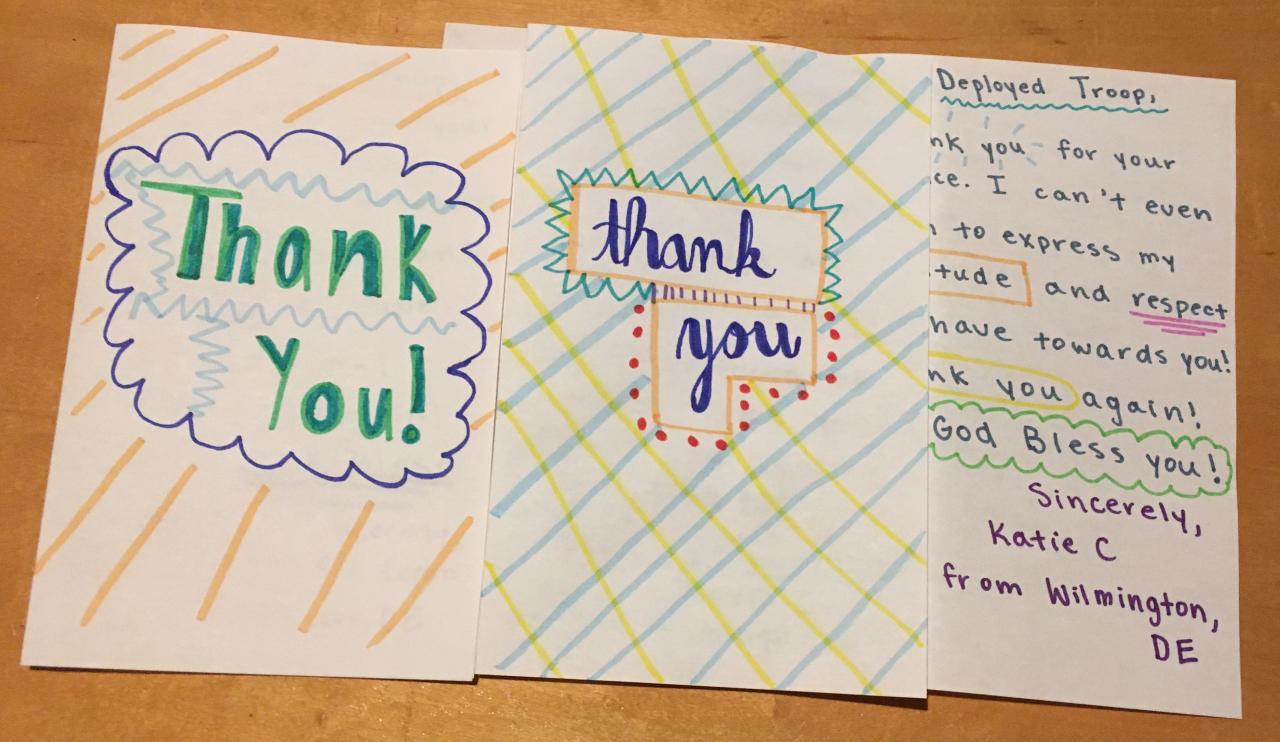 Thank
You!
thank
you
Deployed Troop,
nk you for your
ce. I can't even
to express my
tude and respect
have towards you!
nk you again!
God Bless you!
Sincerely,
Katie C
from Wilmington,
DE